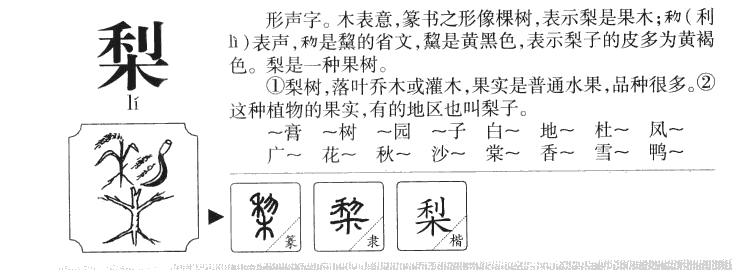 梨
lí
形声字。木表意,篆书之形像棵树,表示梨是果木;𥝢(利
lì)表声,𥝢是黧的省文,黧是黄黑色,表示梨子的皮多为黄褐
色。梨是一种果树。
①梨树,落叶乔木或灌木,果实是普通水果,品种很多。②
这种植物的果实,有的地区也叫梨子。
～膏 ～树 ～园 ～子 白～ 地～ 杜～ 凤～
广～ 花～ 秋～ 沙～ 棠～ 香～ 雪～ 鸭～
篆 隶 梨 楷